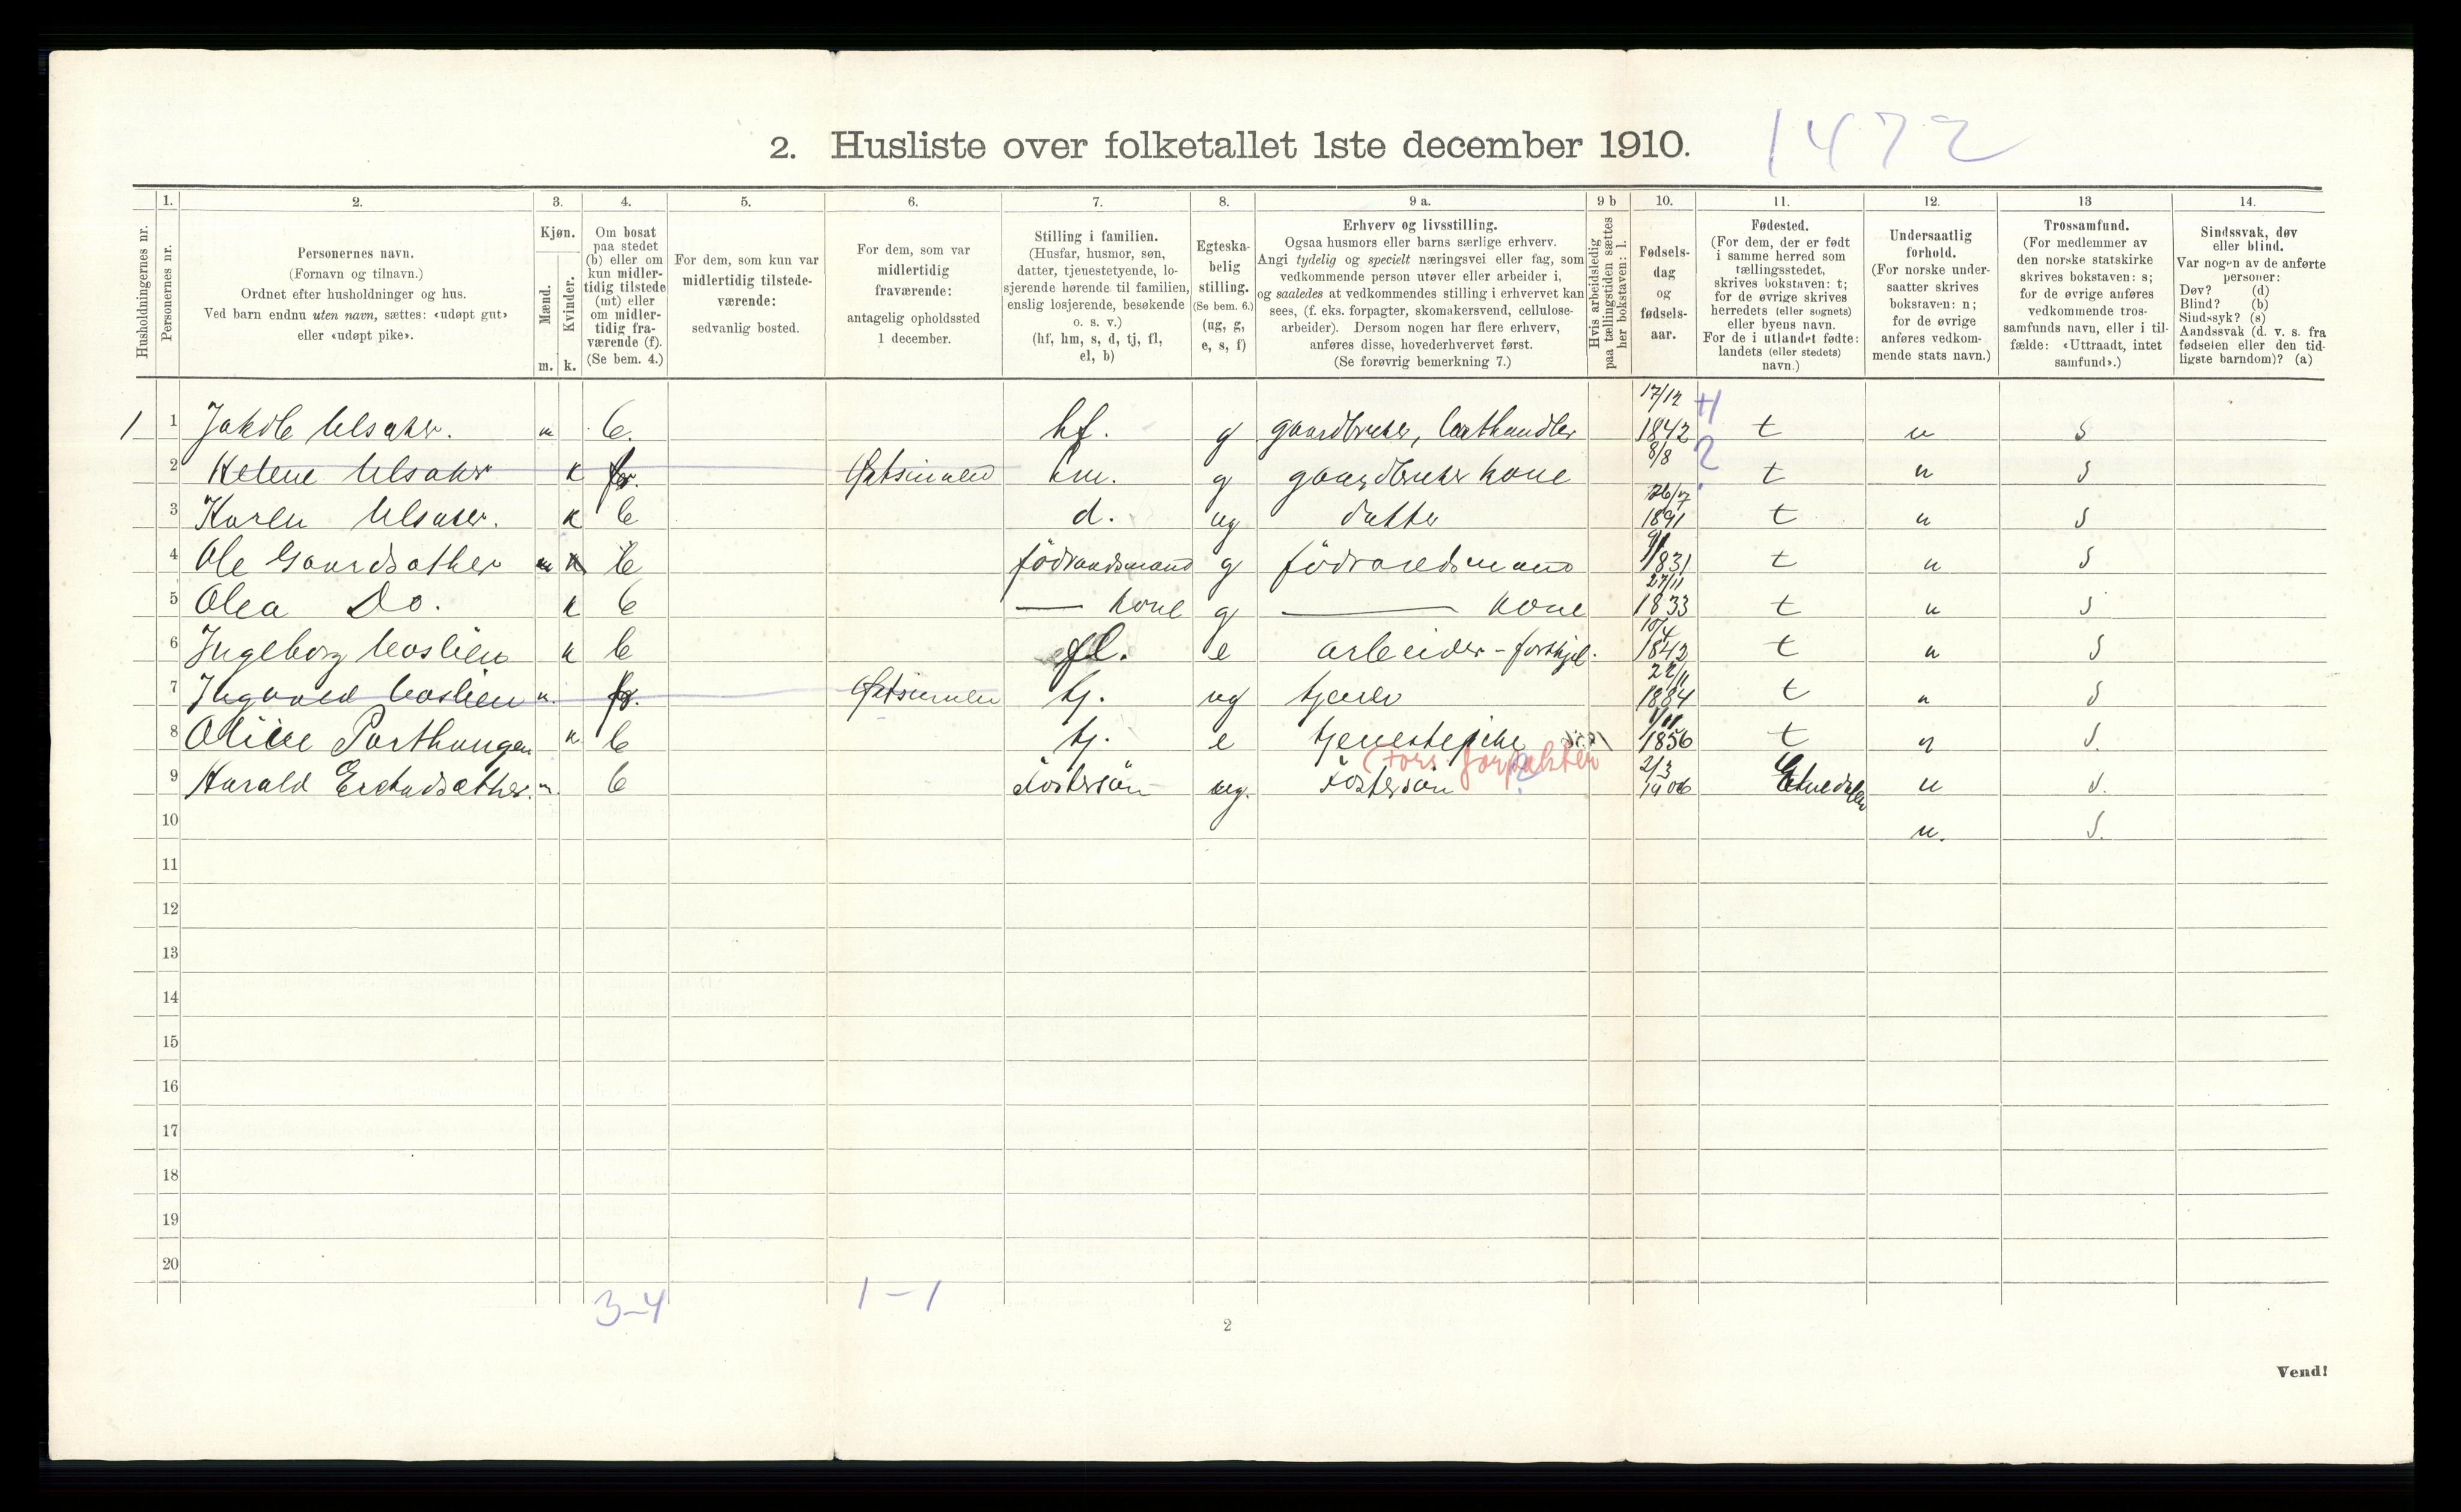 2. Husliste over folketallet 1ste december 1910.
1472
Husholdningernes nr.
1.
Personernes nr.
2.
Personernes navn.
(Fornavn og tilnavn.)
Ordnet efter husholdninger og hus.
Ved barn endnu uten navn, sættes: «udøpt gut»
eller «udøpt pike».
3.
Kjøn.
Mænd.
m.
Kvinder.
k.
4.
Om bosat
paa stedet
(b) eller om
kun midler-
tidig tilstede
(mt) eller
om midler-
tidig fra-
værende (f).
(Se bem. 4.)
5.
For dem, som kun var
midlertidig tilstede-
værende:
sedvanlig bosted.
6.
For dem, som var
midlertidig
fraværende:
antagelig opholdssted
1 december.
7.
Stilling i familien.
(Husfar, husmor, søn,
datter, tjenestetyende, lo-
sjerende hørende til familien,
enslig losjerende, besøkende
o. s. v.)
(hf, hm, s, d, tj, fl,
el, b)
8.
Egteska-
belig
stilling.
(Se bem. 6.)
(ug, g,
e, s, f)
9 a.
Erhverv og livsstilling.
Ogsaa husmors eller barns særlige erhverv.
Angi tydelig og specielt næringsvei eller fag, som
vedkommende person utøver eller arbeider i,
og saaledes at vedkommendes stilling i erhvervet kan
sees, (f. eks. forpagter, skomakersvend, cellulose-
arbeider). Dersom nogen har flere erhverv,
anføres disse, hovederhvervet først.
(Se forøvrig bemerkning 7.)
9 b
Hvis arbeidsledig
paa tællingstiden sættes
her bokstaven: l.
10.
Fødsels-
dag
og
fødsels-
aar.
11.
Fødested.
(For dem, der er født
i samme herred som
tællingsstedet,
skrives bokstaven: t;
for de øvrige skrives
herredets (eller sognets)
eller byens navn.
For de i utlandet fødte:
landets (eller stedets)
navn.)
12.
Undersaatlig
forhold.
(For norske under-
saatter skrives
bokstaven: n;
for de øvrige
anføres vedkom-
mende stats navn.)
13
Trossamfund.
(For medlemmer av
den norske statskirke
skrives bokstaven: s;
for de øvrige anføres
vedkommende tros-
samfunds navn, eller i til-
fælde: «Uttraadt, intet
samfund».)
14.
Sindssvak, døv
eller blind.
Var nogen av de anførte
personer:
Døv? (d)
Blind? (b)
Sindssyk? (s)
Aandssvak (d. v. s. fra
fødselen eller den tid-
ligste barndom)? (a)
1 1 Jakob Ulsaker. m b. hf. g gaardbruker, 17/12 1842 t n s
2 Helene Ulsaker k f. hm. g gaardbruker kone 8/8 t n s
3 Karen Ulsaker. k b d. ug datter 26/7 1891 t n s
4 Ole m b födraadsmand g födraadsmand 1831 t n s
5 Olea Do. k b — kone g — kone 27/11 1833 t n s
6 Ingeborg k b fl. e arbeider - 10/4 1842 t n s
7 m. f. tj. ug tjener 22/11 1884 t n s
8 k b tj. e tjenestepike 1856 t n s.
(Fors. forpakter
9 Harald m. b Fosterson ug. Fosterson ? 2/3 1906 n s.
10 n. s.
11
12
13
14
15
16
17
18
19
20
3-4
1-1
2
Vend!